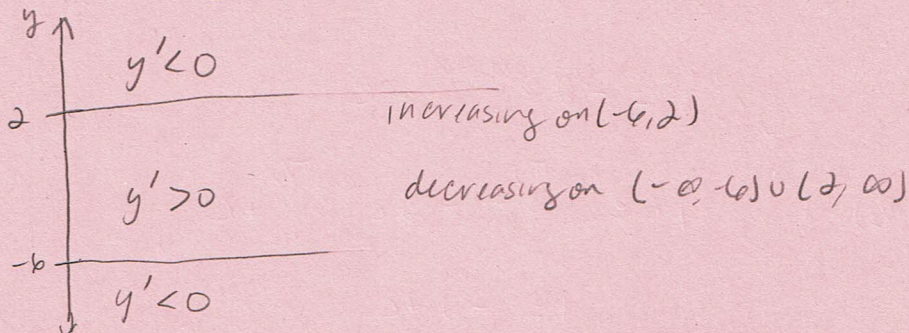 y
y'<0
2
increasing on (-6,2)
y'>0
decreasing on (-∞,-6)∪(2,∞)
-6
y'<0